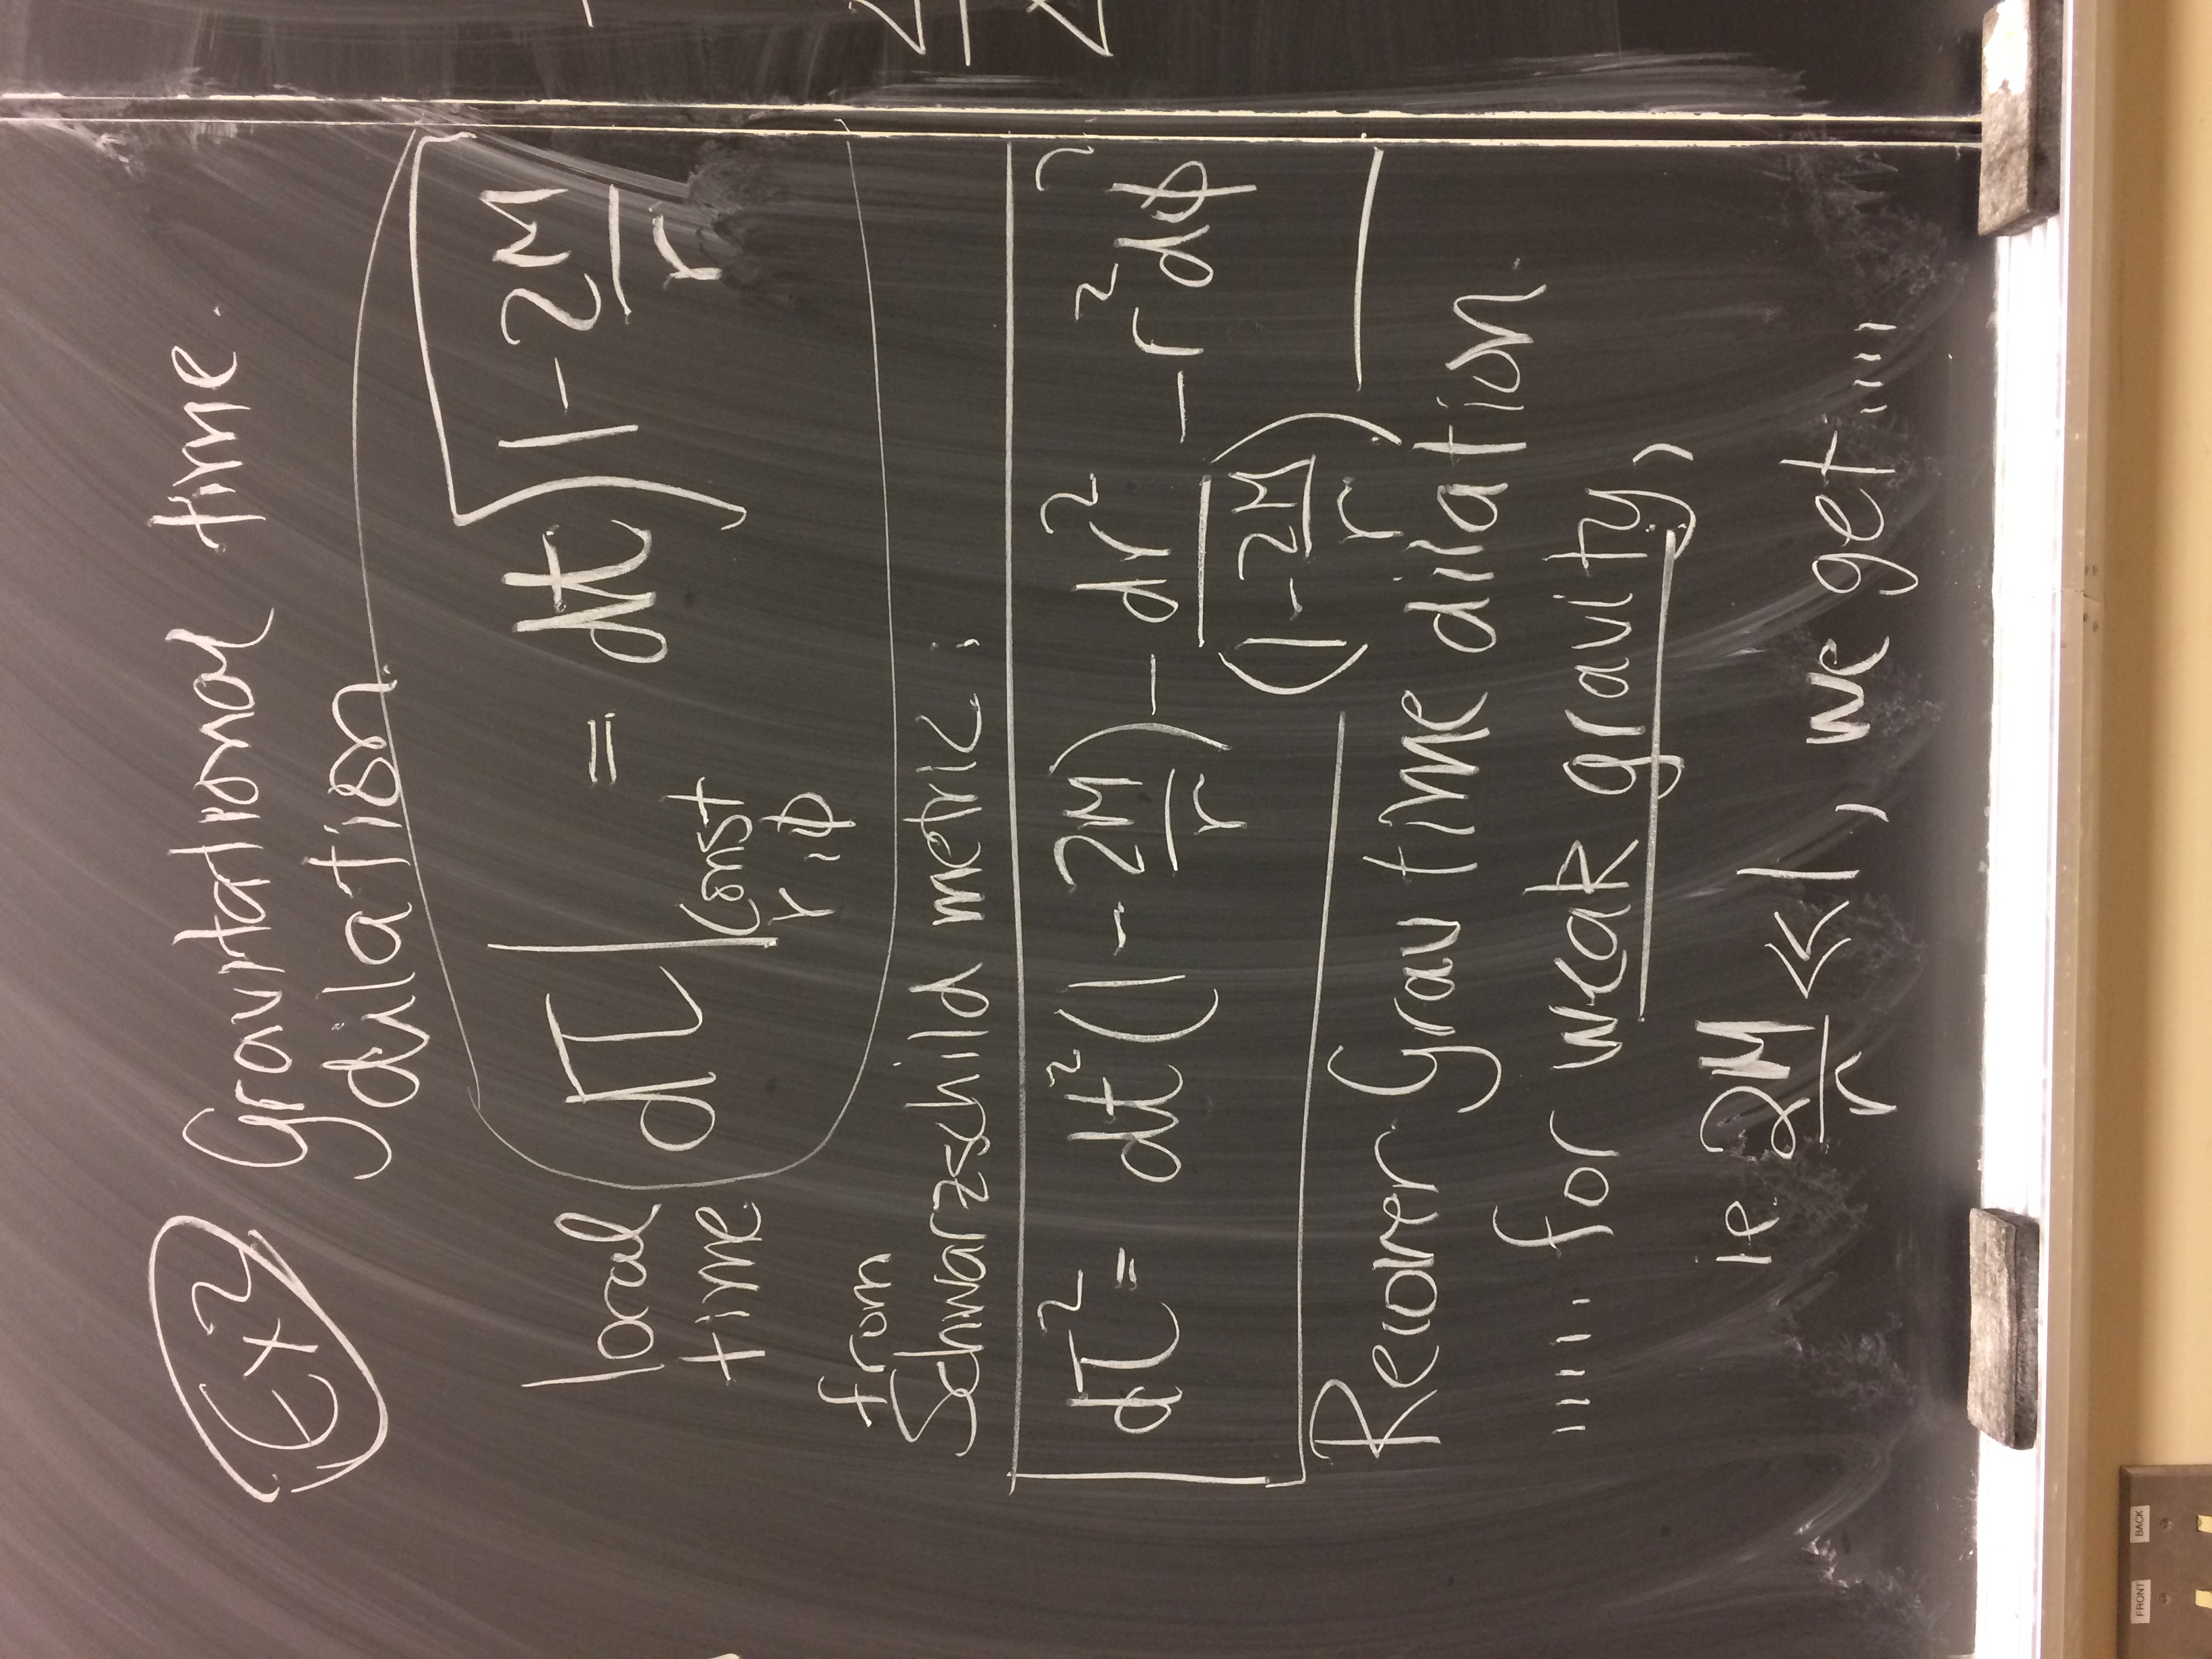 Ex2 Gravitational time.
dilation.
local time dτ|const r, φ = dt √(1 - 2M/r)
from
Schwarzschild metric:
dτ² = dt² (1 - 2M/r) - dr²/(1 - 2M/r) - r² dφ²
Recover Grav time dilation
""" for weak gravity,
ie. 2M/r << 1, we get """
FRONT BACK